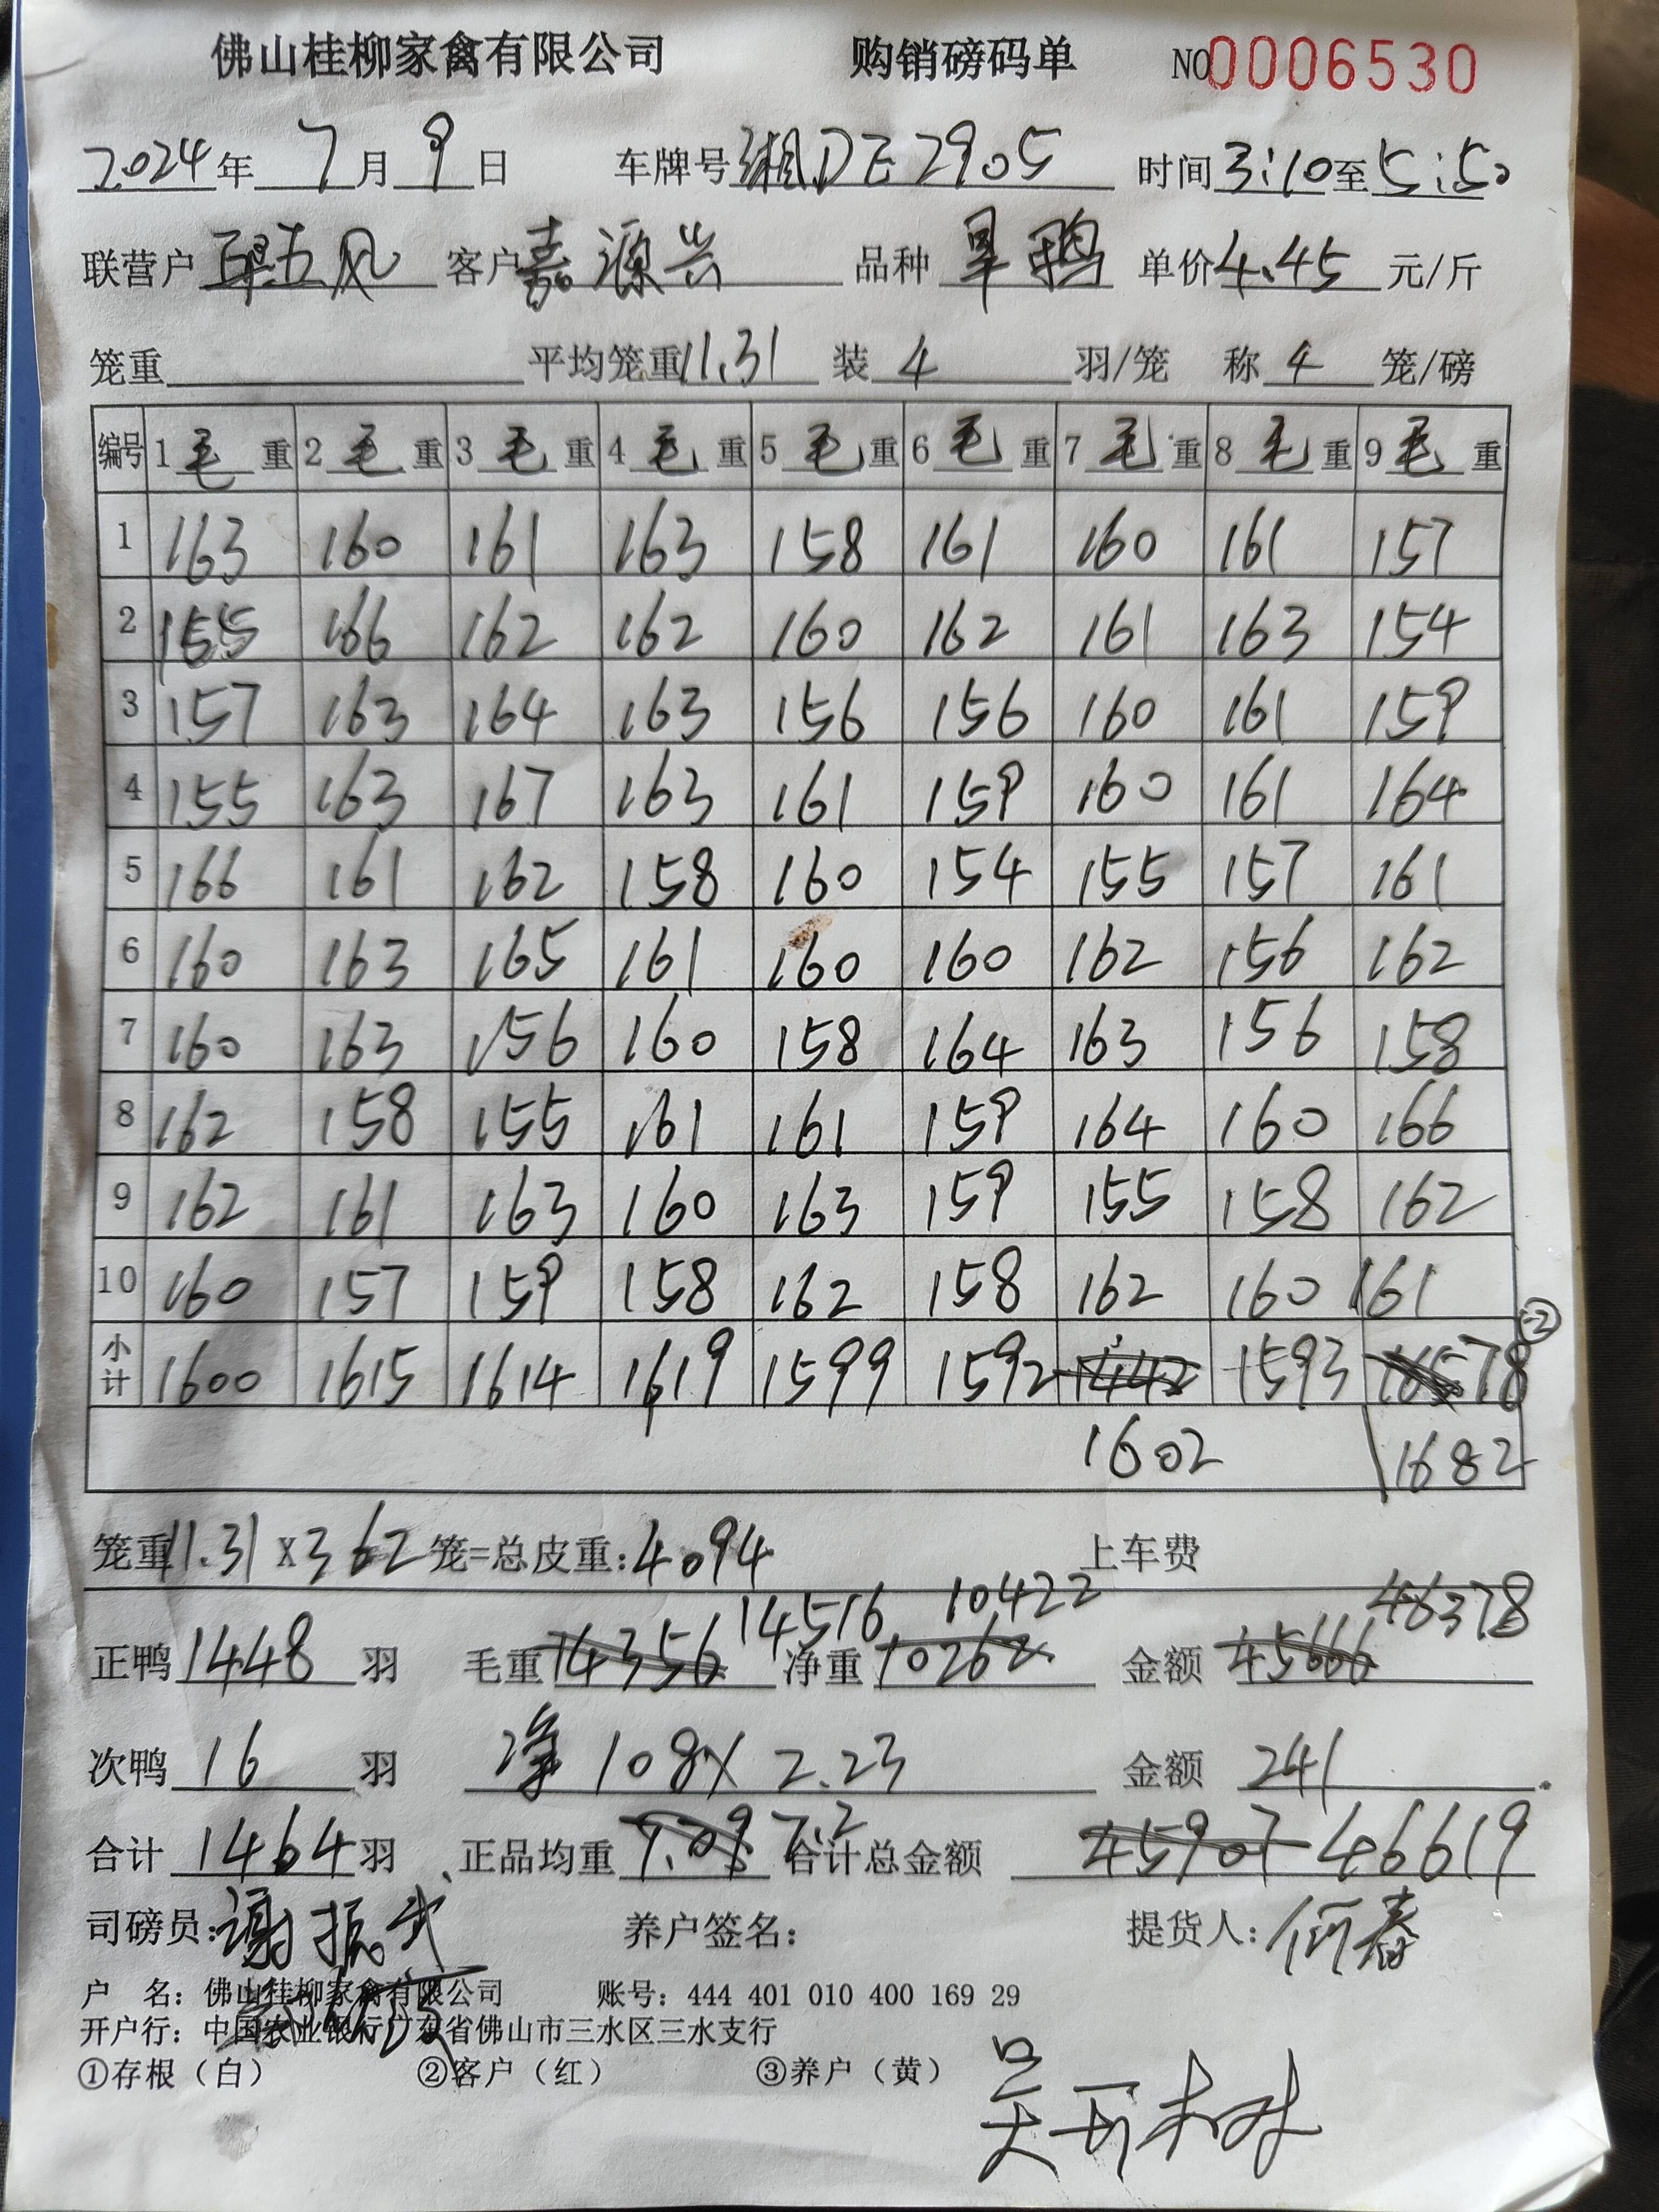 佛山桂柳家禽有限公司 购销磅码单 NO0006530
2024年7月9日 车牌号湘DE2905 时间3:10至5:50
联营户 五风 客户嘉源兴 品种旱鸭 单价4.45元/斤
笼重 平均笼重11.31 装4羽/笼 称4笼/磅
编号 1毛重 2毛重 3毛重 4毛重 5毛重 6毛重 7毛重 8毛重 9毛重
1 163 160 161 163 158 161 160 161 157
2 155 166 162 162 160 162 161 163 154
3 157 163 164 163 156 156 160 161 159
4 155 163 167 163 161 159 160 161 164
5 166 161 162 158 160 154 155 157 161
6 160 163 165 161 160 160 162 156 162
7 160 163 156 160 158 164 163 156 158
8 162 158 155 161 161 159 164 160 166
9 162 161 163 160 163 159 155 158 162
10 160 157 159 158 162 158 162 160 161
小计 1600 1615 1614 1619 1599 1592 1442 1593 78 ②
1602 1682
笼重11.31X362笼=总皮重:4094 上车费
14516 10422 46378
正鸭1448羽 毛重14356 净重10262 金额45666
次鸭16羽 净108X2.23 金额241
合计1464羽 正品均重7.09 7.2 合计总金额45907 46619
司磅员:谢振武 养户签名: 提货人:何春
户 名: 佛山桂柳家禽有限公司 账号: 444 401 010 400 169 29
开户行: 中国农业银行广东省佛山市三水区三水支行
①存根(白) ②客户(红) ③养户(黄)